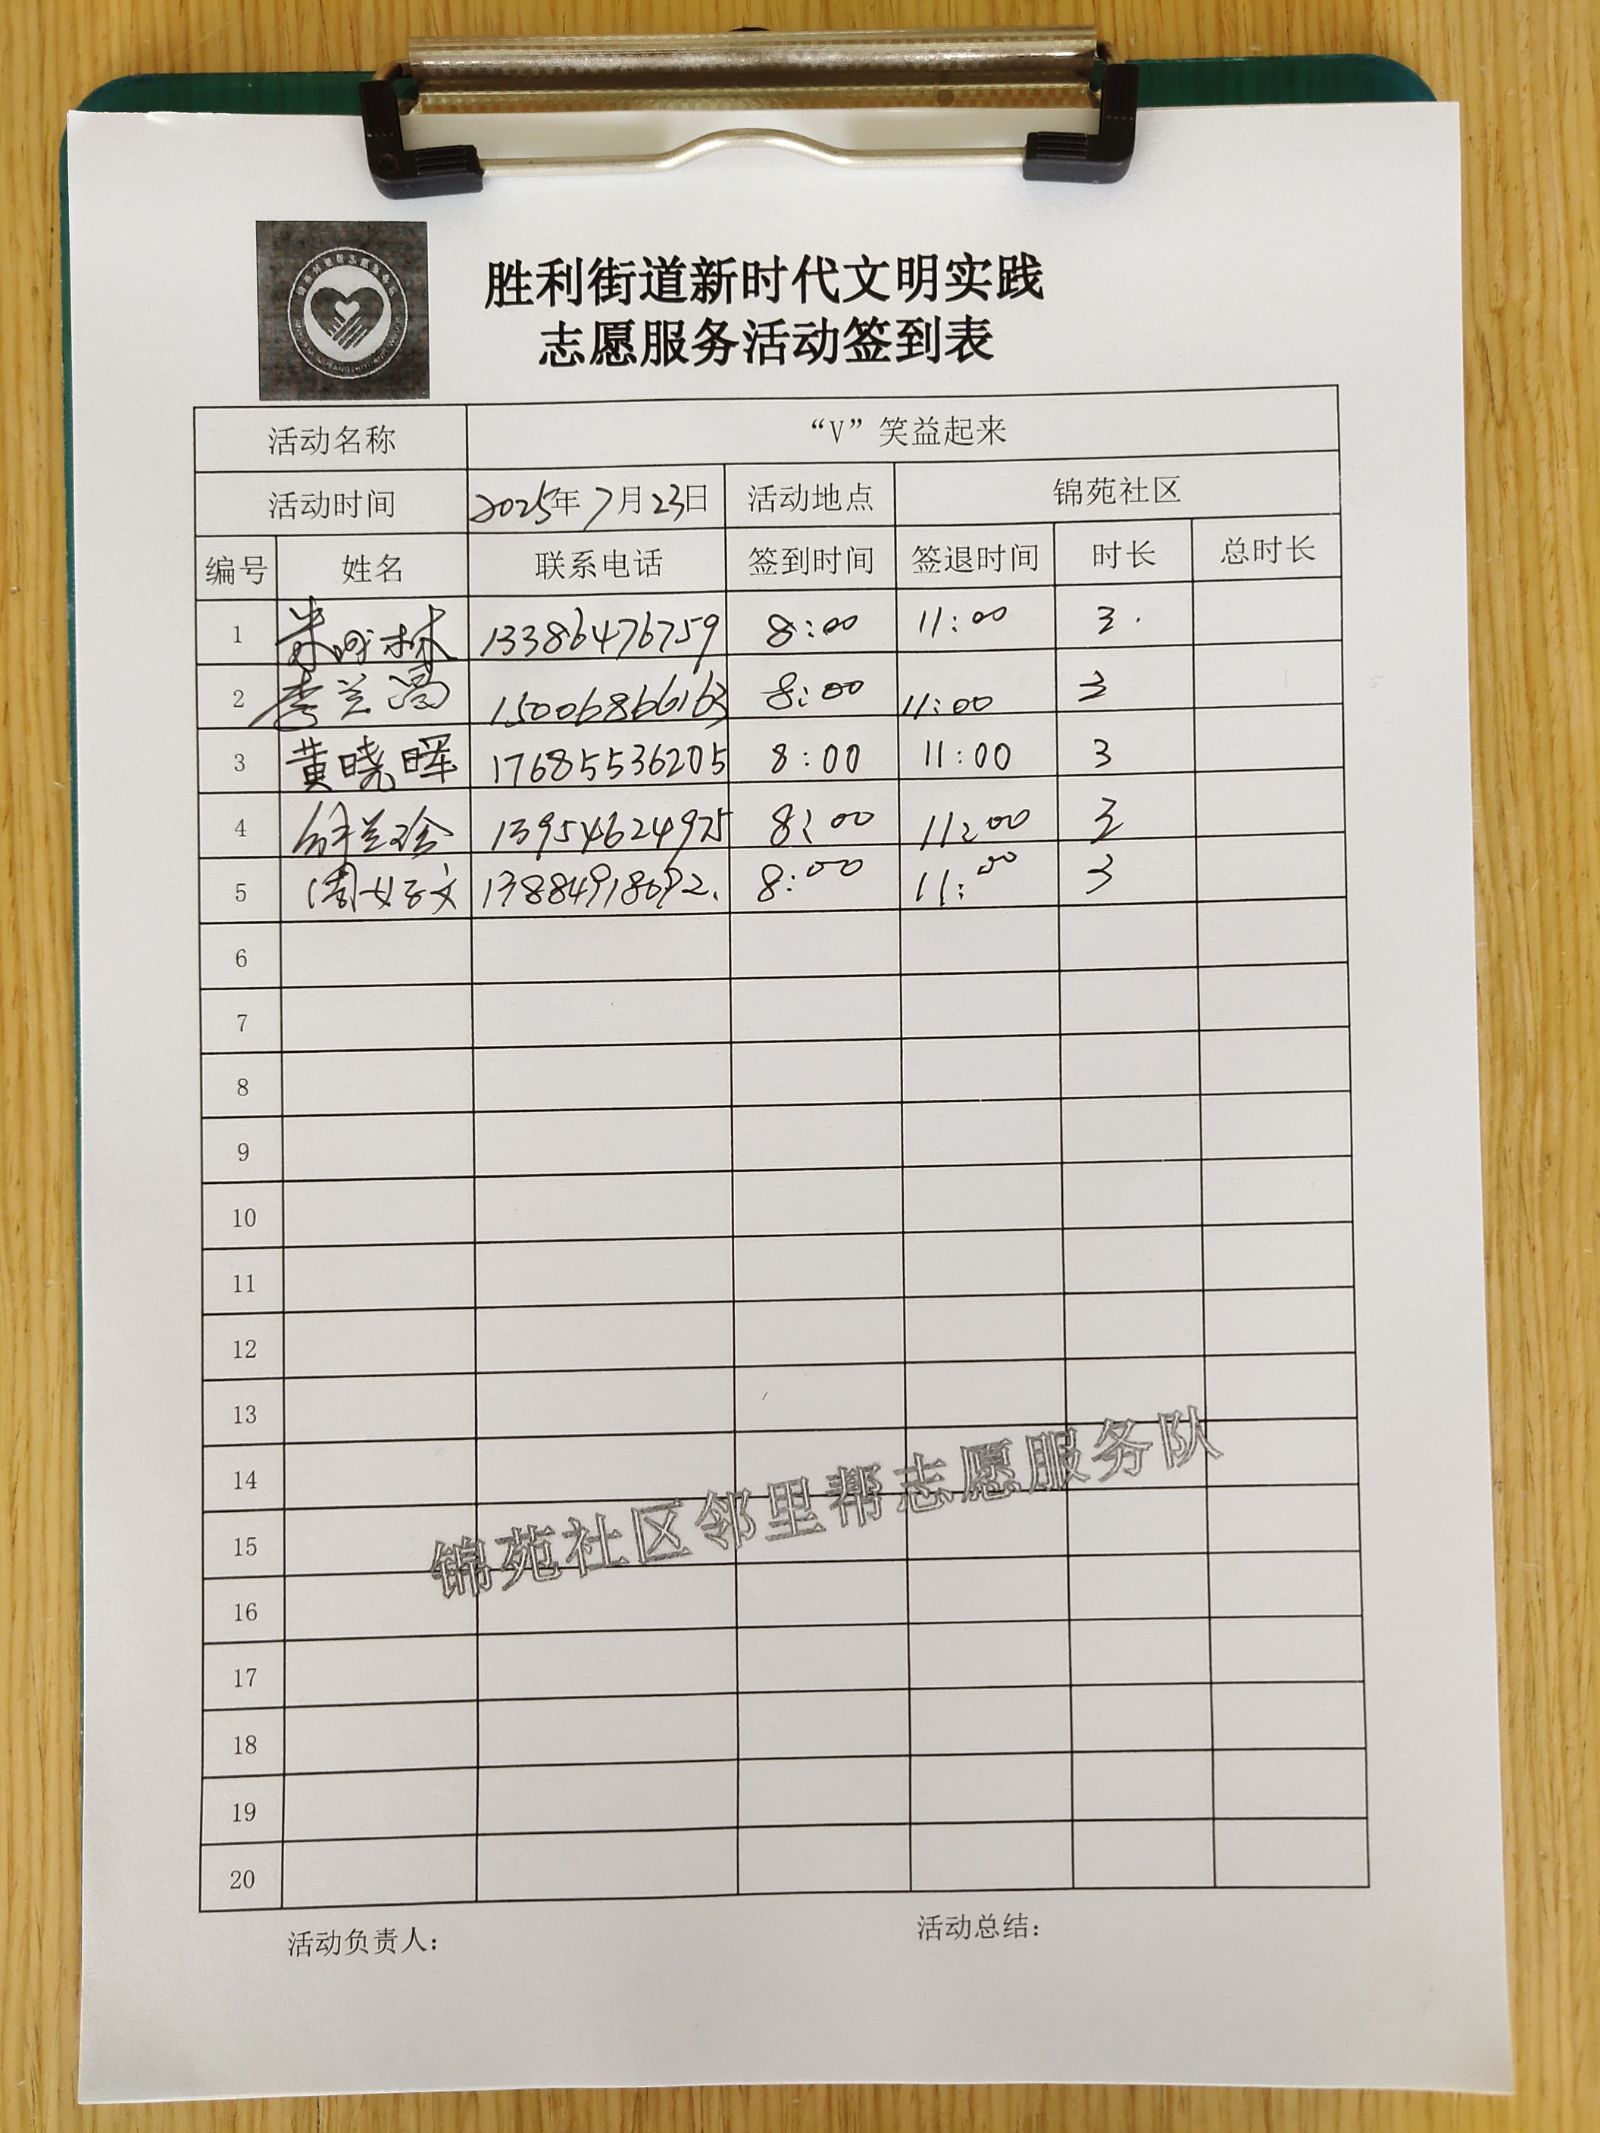 胜利街道新时代文明实践
志愿服务活动签到表
活动名称 “V”笑益起来
活动时间 2025年7月23日 活动地点 锦苑社区
编号 姓名 联系电话 签到时间 签退时间 时长 总时长
1 林 13386476759 8:00 11:00 3.
2 李兰 15006866163 8:00 11:00 3
3 黄晓晖 17685536205 8:00 11:00 3
4 兰珍 13954624975 8:00 11:00 3
5 周好文 13884918692. 8:00 11:00 3
6
7
8
9
10
11
12
13
14
15
16
17
18
19
20
锦苑社区邻里帮志愿服务队
活动负责人： 活动总结：